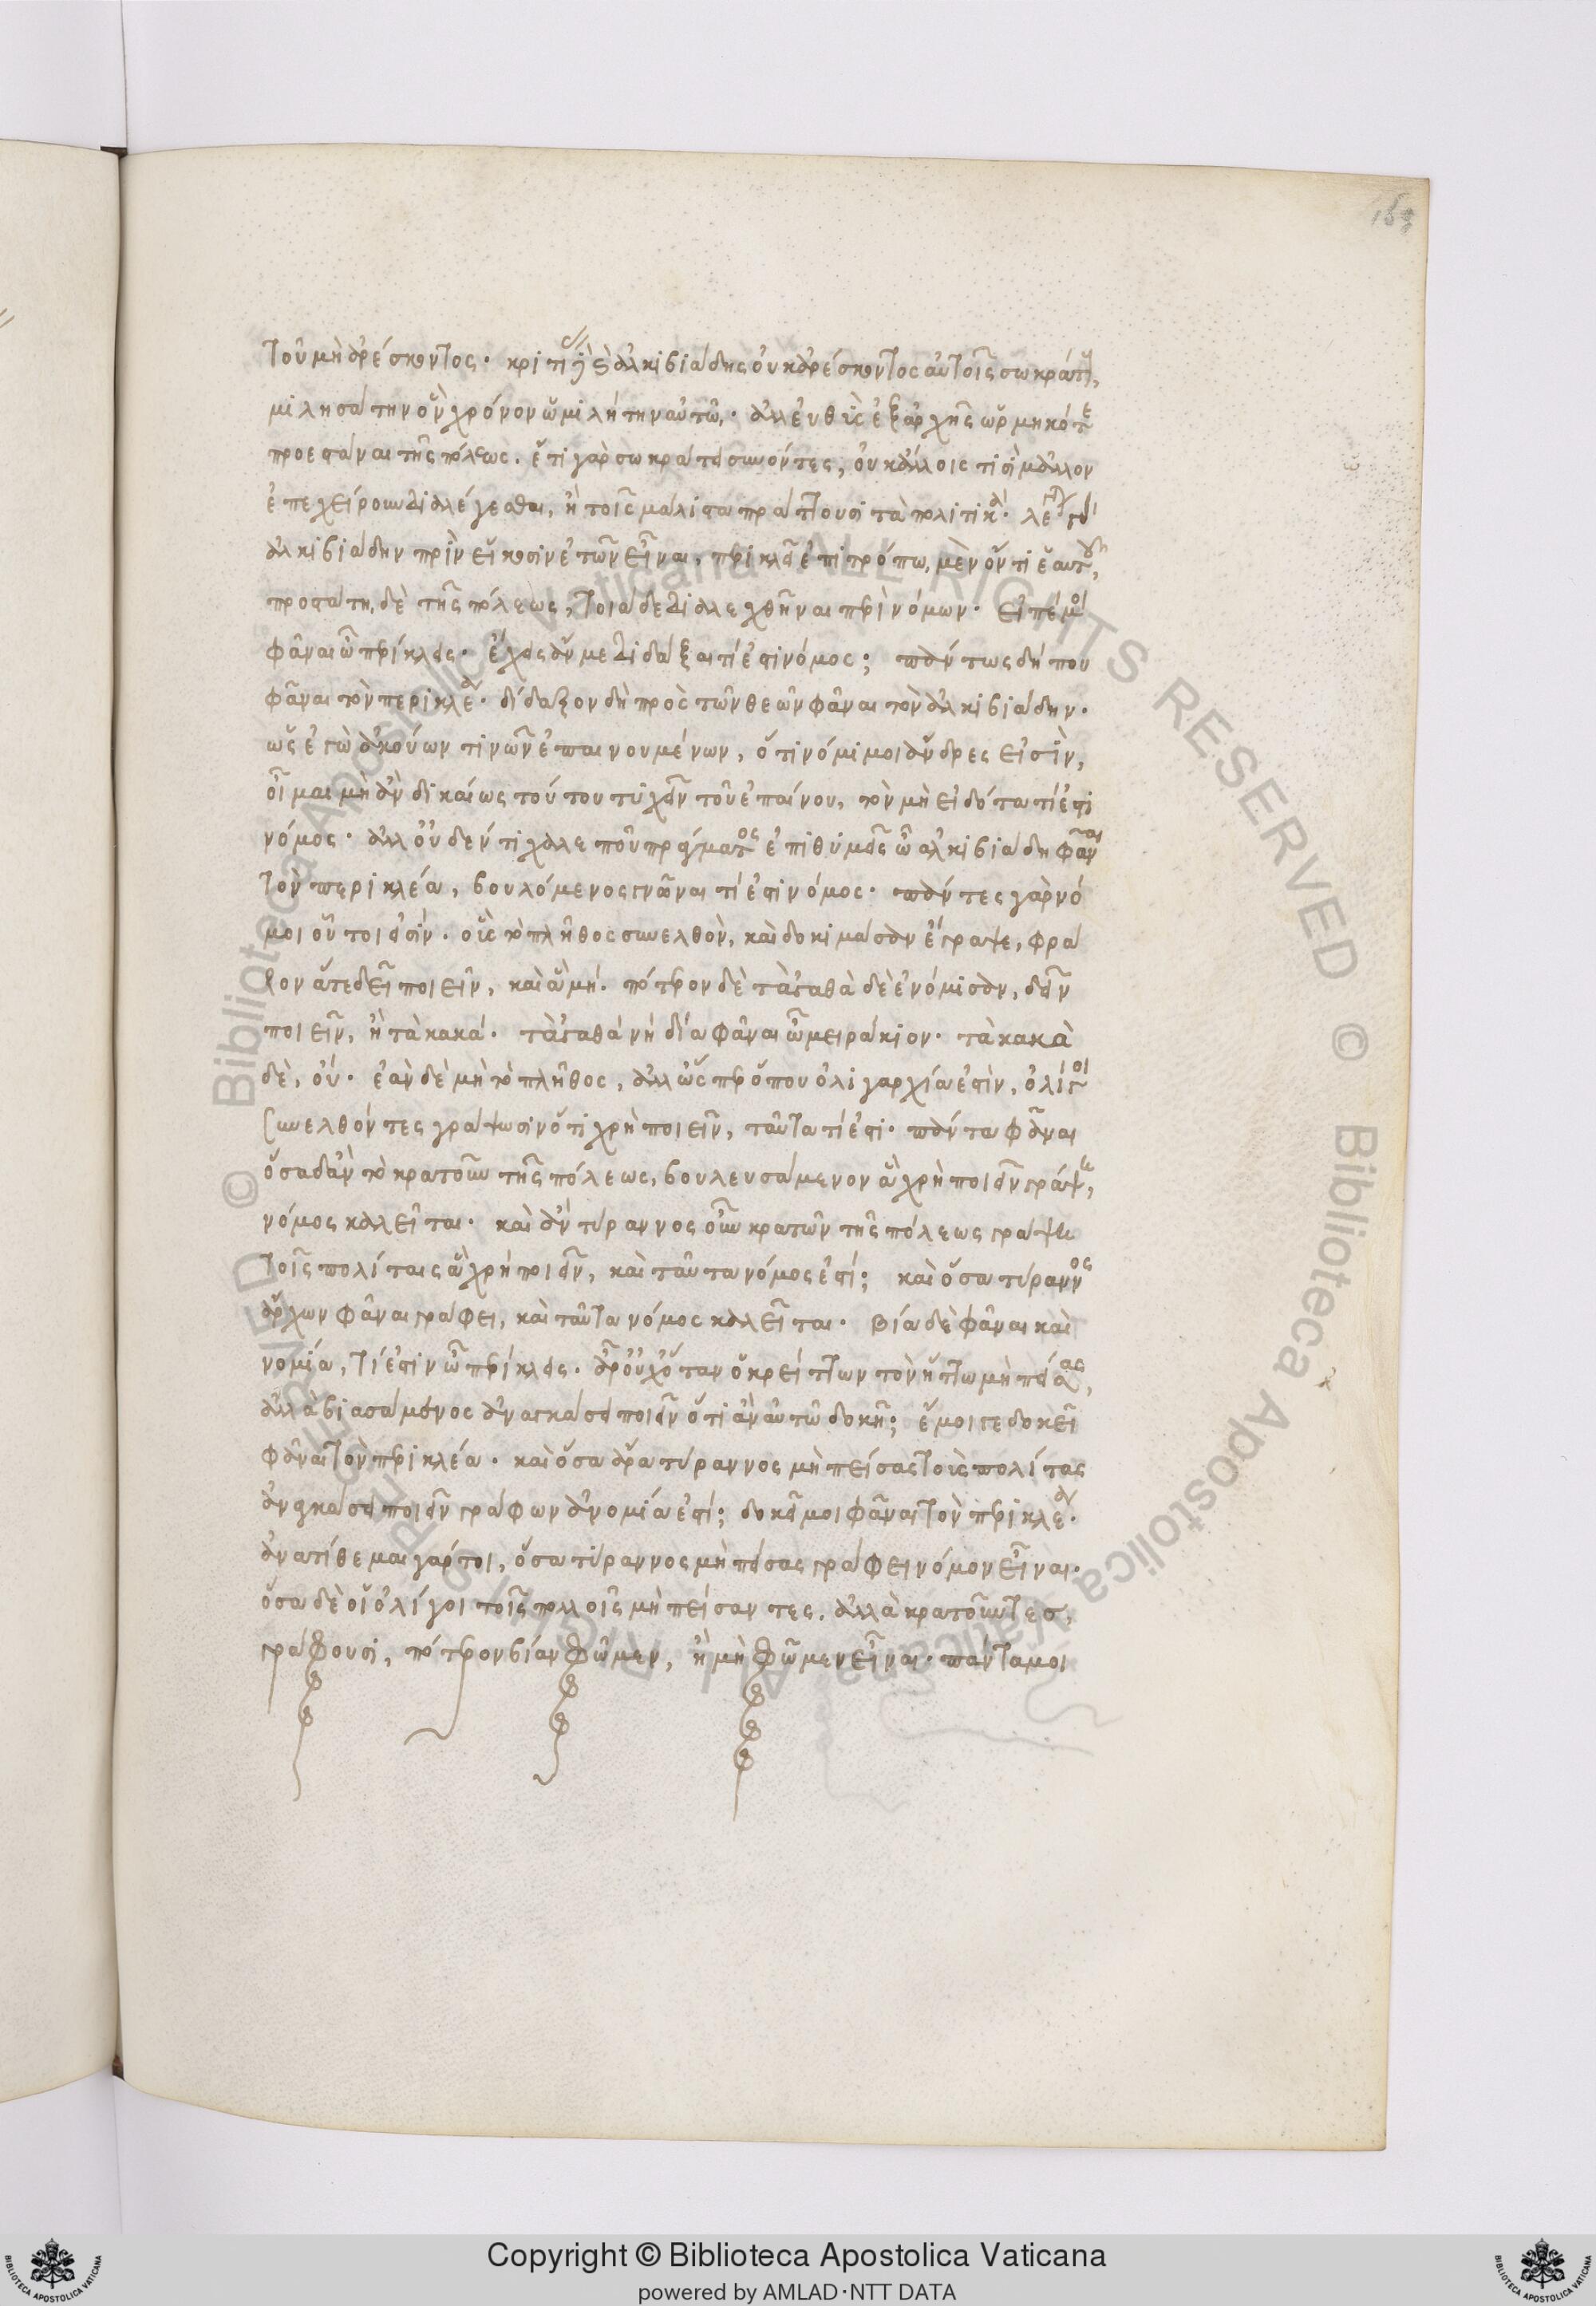 163
τοῦ μὴ ἀρέσκοντος· κριτίας δὲ καὶ ἀλκιβιάδης οὐκ ἀρέσκοντος αὐτοῖς σωκράτους,
μιλησάτην ὃν χρόνον ὡμιλήτην αὐτῶ· ἀλλ εὐθὺς ἐξ ἀρχῆς ὡρμηκότε
προεστάναι τῆς πόλεως. ἔτι γὰρ σωκράτει συνόντες, οὐκ ἄλλοις τισὶ μᾶλλον
ἐπεχείρουν διαλέγεσθαι, ἢ τοῖς μάλιστα πράττουσι τὰ πολιτικά· λέγεται γὰρ
ἀλκιβιάδην πρὶν εἴκοσιν ἐτῶν εἶναι, περικλεῖ ἐπιτρόπω μὲν ὄντι ἑαυτοῦ,
προστάτη δὲ τῆς πόλεως, τοιάδε διαλεχθῆναι περὶ νόμων· εἰπέ μοι
φᾶναι ὦ περίκλεις· ἔχεις ἄν με διδάξαι τί ἐστι νόμος; πάντως δήπου
φᾶναι τὸν περικλέα· δίδαξον δὴ πρὸς τῶν θεῶν φᾶναι τὸν ἀλκιβιάδην·
ὡς ἐγὼ ἀκούων τινῶν ἐπαινουμένων, ὅτι νόμιμοι ἄνδρες εἰσὶν,
οἶμαι μὴ ἂν δικαίως τούτου τυχεῖν τοῦ ἐπαίνου, τὸν μὴ εἰδότα τί ἐστι
νόμος· ἀλλ οὐδέν τι χαλεποῦ πράγματος ἐπιθυμεῖς ὦ αλκιβιάδη φᾶναι
τὸν περικλέα, βουλόμενος γνῶναι τί ἐστι νόμος· πάντες γὰρ νό
μοι οὗτοι εἰσίν· οὓς τὸ πλῆθος συνελθὸν, καὶ δοκιμάσαν ἔγραψε, φρά
ζον ἅτε δεῖ ποιεῖν, καὶ ἃ μή. πότερον δὲ τἀγαθὰ δὲ ἐνόμισαν, δεῖν
ποιεῖν, ἢ τὰ κακά· τἀγαθά νὴ δία φᾶναι ὦ μειράκιον· τὰ κακὰ
δὲ, οὔ· ἐὰν δὲ μὴ τὸ πλῆθος, ἀλλ ὥσπερ ὅπου ὀλιγαρχία ἐστὶν, ὀλίγοι
συνελθόντες γράψωσιν ὅτι χρὴ ποιεῖν, ταῦτα τί ἐστι· πάντα φᾶναι
ὅσα δἂν τὸ κρατοῦν τῆς πόλεως, βουλευσάμενον ἃ χρὴ ποιεῖν γράψει,
νόμος καλεῖται· καὶ ἂν τύραννος οὖν κρατῶν τῆς πόλεως γράψει
τοῖς πολίταις ἃ χρὴ ποιεῖν, καὶ ταῦτα νόμος ἐστί; καὶ ὅσα τύραννος
ἄρχων φᾶναι γράφει, καὶ ταῦτα νόμος καλεῖται· βία δὲ φᾶναι καὶ
νομία, τί ἐστιν ὦ περίκλεις· ἆρ οὐχ ὅταν ὁ κρείττων τὸν ἥττω μὴ πείσας,
ἀλλὰ βιασάμενος ἀναγκάσει ποιεῖν ὅτι ἂν αὐτῶ δοκῆ; ἔμοιγε δοκεῖ
φᾶναι τὸν περικλέα· καὶ ὅσα ἄρα τύραννος μὴ πείσας τοὺς πολίτας
ἀναγκάσει ποιεῖν γράφων ἀνομία ἐστί; δοκεῖ μοι φᾶναι τὸν περικλέα·
ἀνατίθεμαι γάρ τοι, ὅσα τύραννος μὴ πείσας γράφει νόμον εἶναι·
ὅσα δὲ οἱ ὀλίγοι τοῖς πολλοῖς μὴ πείσαντες, ἀλλὰ κρατοῦντες,
γράφουσι, πότερον βίαν φῶμεν, ἢ μὴ φῶμεν εἶναι· πάντα μοι
Copyright © Biblioteca Apostolica Vaticana
powered by AMLAD·NTT DATA